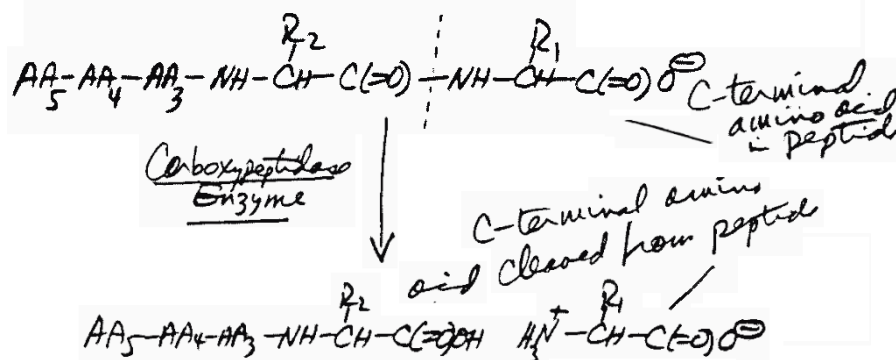 R₂ R₁
AA₅-AA₄-AA₃-NH-CH-C(=O)-NH-CH-C(=O)O⊖
C-terminal
amino acid
in peptide
Carboxypeptidase
Enzyme
C-terminal amino
acid cleaved from peptide
R₂ R₁
AA₅-AA₄-AA₃-NH-CH-C(=O)OH H₃N⁺-CH-C(=O)O⊖